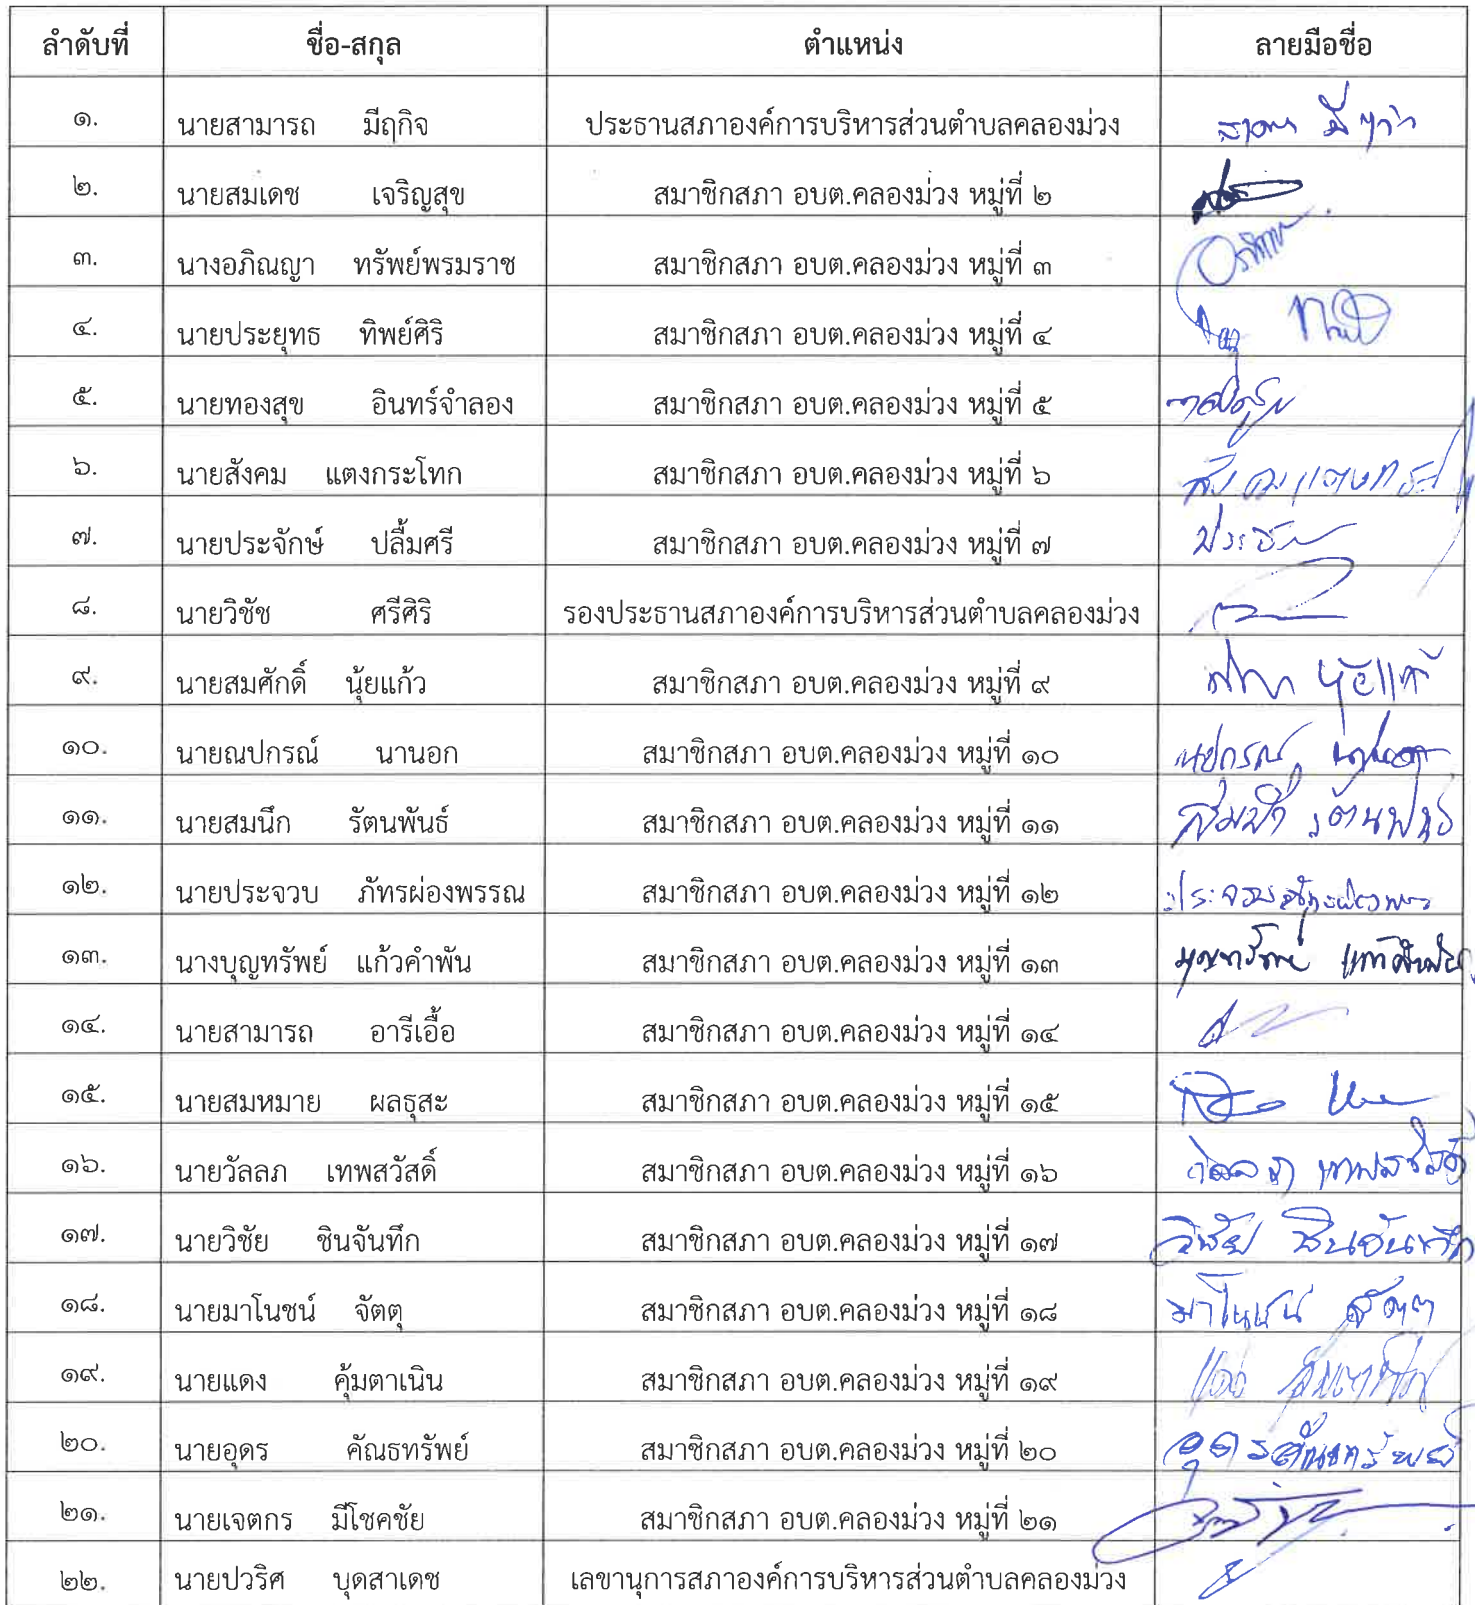 ลำดับที่ ชื่อ-สกุล ตำแหน่ง ลายมือชื่อ
๑. นายสามารถ มีฤกิจ ประธานสภาองค์การบริหารส่วนตำบลคลองม่วง
๒. นายสมเดช เจริญสุข สมาชิกสภา อบต.คลองม่วง หมู่ที่ ๒
๓. นางอภิณญา ทรัพย์พรมราช สมาชิกสภา อบต.คลองม่วง หมู่ที่ ๓
๔. นายประยุทธ ทิพย์ศิริ สมาชิกสภา อบต.คลองม่วง หมู่ที่ ๔
๕. นายทองสุข อินทร์จำลอง สมาชิกสภา อบต.คลองม่วง หมู่ที่ ๕
๖. นายสังคม แตงกระโทก สมาชิกสภา อบต.คลองม่วง หมู่ที่ ๖
๗. นายประจักษ์ ปลื้มศรี สมาชิกสภา อบต.คลองม่วง หมู่ที่ ๗
๘. นายวิชัช ศรีศิริ รองประธานสภาองค์การบริหารส่วนตำบลคลองม่วง
๙. นายสมศักดิ์ นุ้ยแก้ว สมาชิกสภา อบต.คลองม่วง หมู่ที่ ๙
๑๐. นายณปกรณ์ นานอก สมาชิกสภา อบต.คลองม่วง หมู่ที่ ๑๐ ณปกรณ์ นานอก
๑๑. นายสมนึก รัตนพันธ์ สมาชิกสภา อบต.คลองม่วง หมู่ที่ ๑๑
๑๒. นายประจวบ ภัทรผ่องพรรณ สมาชิกสภา อบต.คลองม่วง หมู่ที่ ๑๒
๑๓. นางบุญทรัพย์ แก้วคำพัน สมาชิกสภา อบต.คลองม่วง หมู่ที่ ๑๓ บุญทรัพย์ แก้วคำพัน
๑๔. นายสามารถ อารีเอื้อ สมาชิกสภา อบต.คลองม่วง หมู่ที่ ๑๔
๑๕. นายสมหมาย ผลธุสะ สมาชิกสภา อบต.คลองม่วง หมู่ที่ ๑๕
๑๖. นายวัลลภ เทพสวัสดิ์ สมาชิกสภา อบต.คลองม่วง หมู่ที่ ๑๖
๑๗. นายวิชัย ชินจันทึก สมาชิกสภา อบต.คลองม่วง หมู่ที่ ๑๗ วิชัย ชินจันทึก
๑๘. นายมาโนชน์ จัตตุ สมาชิกสภา อบต.คลองม่วง หมู่ที่ ๑๘ มาโนชน์ จัตตุ
๑๙. นายแดง คุ้มตาเนิน สมาชิกสภา อบต.คลองม่วง หมู่ที่ ๑๙
๒๐. นายอุดร คัณธทรัพย์ สมาชิกสภา อบต.คลองม่วง หมู่ที่ ๒๐ อุดร คัณธทรัพย์
๒๑. นายเจตกร มีโชคชัย สมาชิกสภา อบต.คลองม่วง หมู่ที่ ๒๑
๒๒. นายปวริศ บุดสาเดช เลขานุการสภาองค์การบริหารส่วนตำบลคลองม่วง